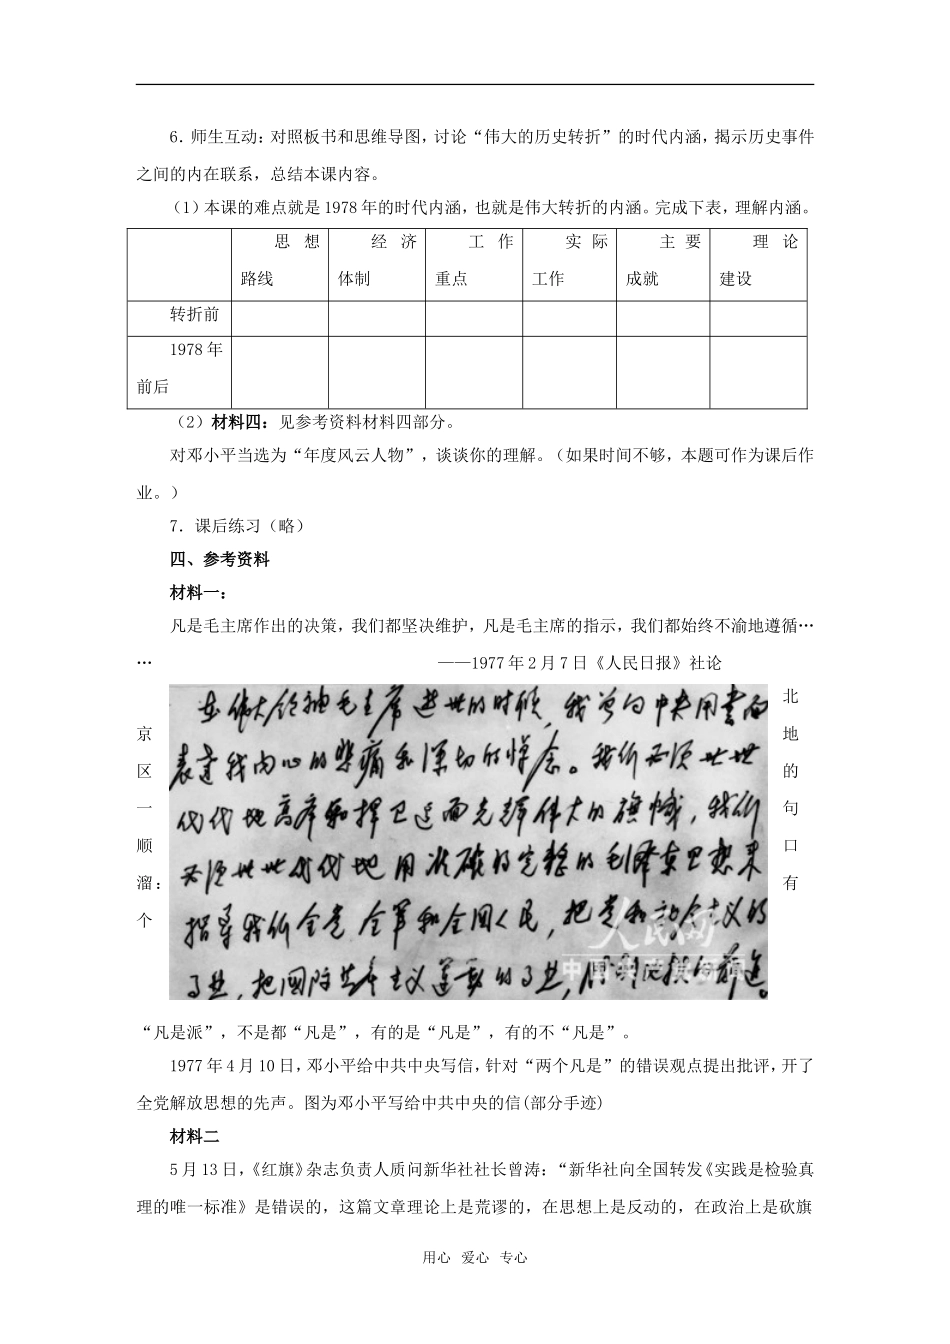 6．师生互动：对照板书和思维导图，讨论“伟大的历史转折”的时代内涵，揭示历史事件
之间的内在联系，总结本课内容。
（1）本课的难点就是 1978 年的时代内涵，也就是伟大转折的内涵。完成下表，理解内涵。
思想路线 经济体制 工作重点 实际工作 主要成就 理论建设
转折前
1978 年前后
（2）材料四：见参考资料材料四部分。
对邓小平当选为“年度风云人物”，谈谈你的理解。（如果时间不够，本题可作为课后作
业。）
7．课后练习（略）
四、参考资料
材料一：
凡是毛主席作出的决策，我们都坚决维护，凡是毛主席的指示，我们都始终不渝地遵循…
… ——1977 年 2 月 7 日《人民日报》社论
北
京 地
区 的
一 句
顺 口
溜： 有
个
在伟大领袖毛主席逝世的时候，我曾向中央用书面
表达我内心的悲痛和深切的悼念。我们必须世世
代代地高举和捍卫这面光辉伟大的旗帜，我们
必须世世代代地用准确的完整的毛泽东思想来
指导我们全党全军和全国人民，把党和社会主义的
事业，把国际共产主义运动的事业，胜利地推向前进。
人民网
中国共产党新闻
“凡是派”，不是都“凡是”，有的是“凡是”，有的不“凡是”。
1977 年 4 月 10 日，邓小平给中共中央写信，针对“两个凡是”的错误观点提出批评，开了
全党解放思想的先声。图为邓小平写给中共中央的信(部分手迹)
材料二
5 月 13 日，《红旗》杂志负责人质问新华社社长曾涛：“新华社向全国转发《实践是检验真
理的唯一标准》是错误的，这篇文章理论上是荒谬的，在思想上是反动的，在政治上是砍旗
用心 爱心 专心